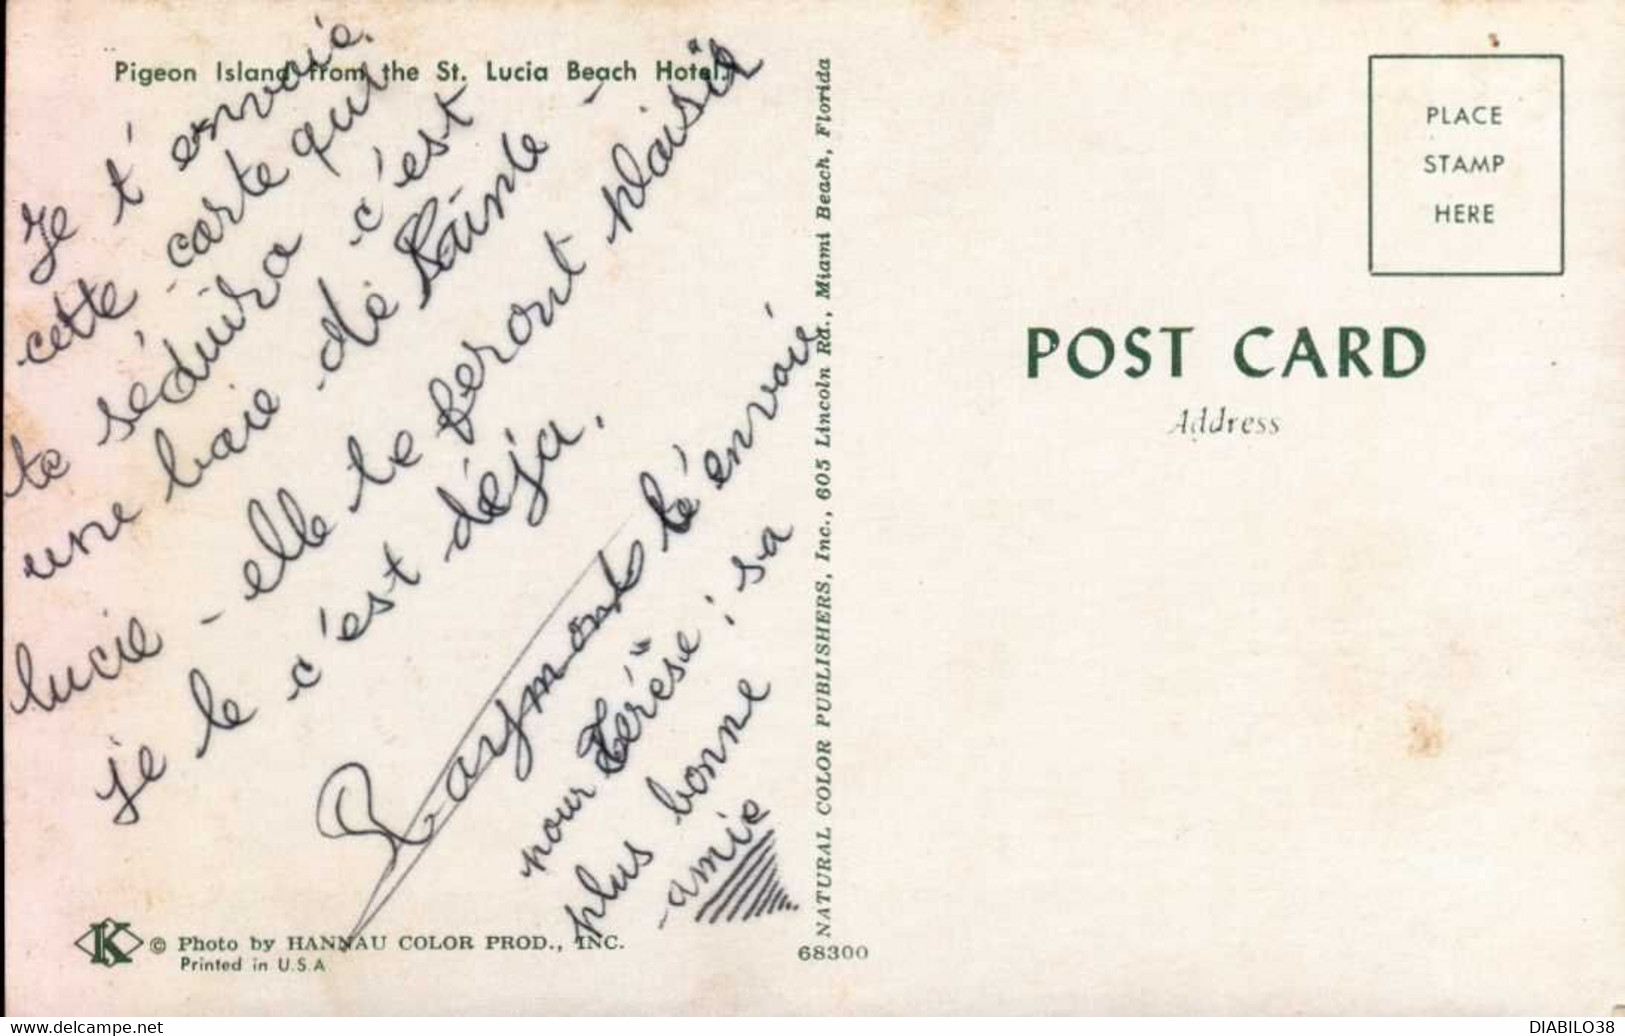 Pigeon Island from the St. Lucia Beach Hotel.
Je t'envoie
cette carte qui
te séduira c'est
une baie de Sainte-
lucie - elle te feront plaisir
je le c'est déja.
Raymonde t'envoie
pour Térèse ; sa
plus bonne
amie
K © Photo by HANNAU COLOR PROD., INC.
Printed in U.S.A
NATURAL COLOR PUBLISHERS, Inc., 605 Lincoln Rd., Miami Beach, Florida
68300
PLACE
STAMP
HERE
POST CARD
Address
DIABILO38
www.delcampe.net